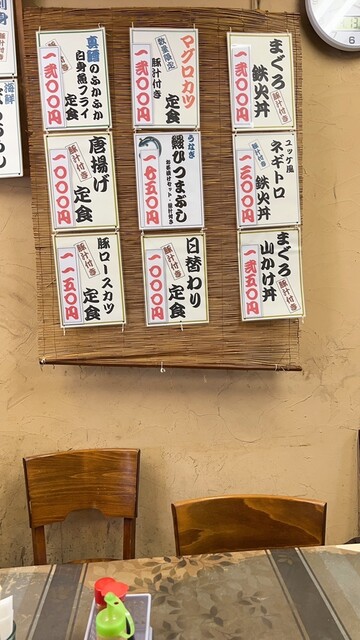 まぐろ
鉄火丼
豚汁付き
一二〇〇円
マグロカツ
定食
数量限定
豚汁付き
一二〇〇円
真鱈のふかふか
白身魚フライ
定食
一二〇〇円
ユッケ風
ネギトロ
鉄火丼
豚汁付き
一三〇〇円
うなぎ
鰻ひつまぶし
一八五〇円
唐揚げ
定食
豚汁付き
一〇〇〇円
まぐろ
山かけ丼
豚汁付き
一二五〇円
日替わり
定食
豚汁付き
一〇〇〇円
豚ロースカツ
定食
豚汁付き
一一五〇円
刺身
海鮮
6